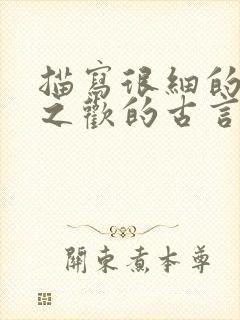 描寫很細的
之歡的古言
關東煮本尊